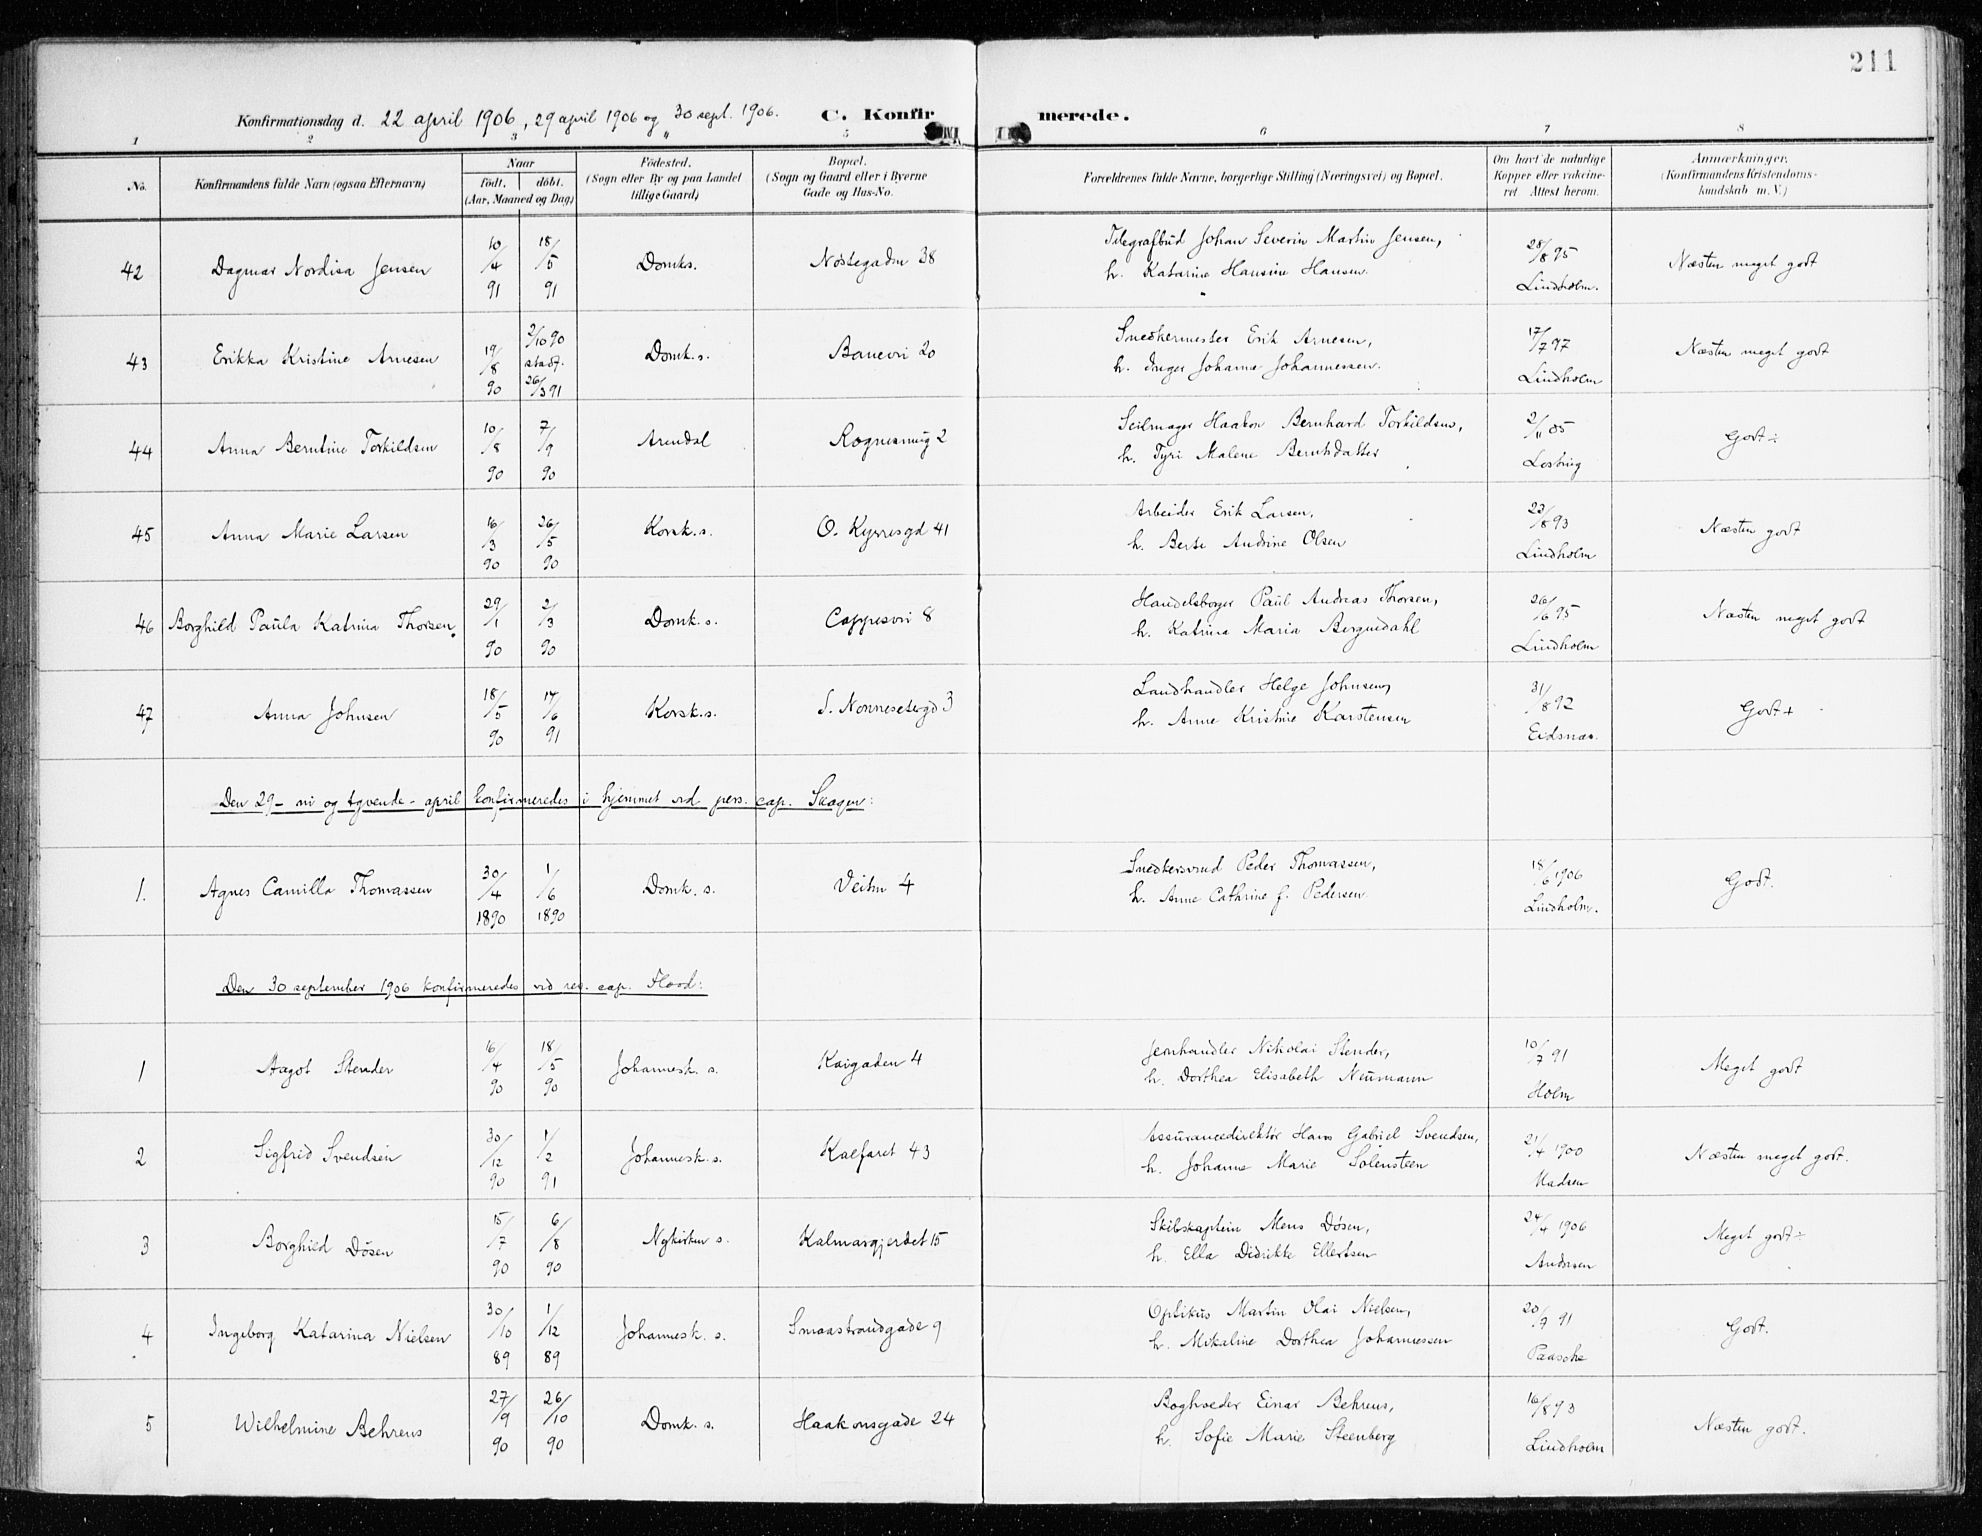 211
Konfirmationsdag d. 22 april 1906, 29 april 1906 og 30 sept. 1906.
C. Konfirmerede.
1 2 3 5 6 7 8
No. Konfirmandens fulde Navn (ogsaa Efternavn) Naar født, døbt. (Aar, Maaned og Dag) Fødested. (Sogn eller By og paa Landet tillige Gaard) Bopæl. (Sogn og Gaard eller i Byerne Gade og Hus-No. Forældrenes fulde Navne, borgerlige Stilling (Næringsvei) og Bopæl. Om havt de naturlige Kopper eller vakcineret. Attest herom. Anmærkninger. (Konfirmandens Kristendomskundskab m. V.)
42 Dagmar Nordisa Jensen 10/4 91 18/5 91 Domks. Nøstegaden 38 Telegrafbud Johan Severin Martin Jensen, h. Katarine Hansine Hansen 28/8 95 Lindholm. Næsten meget godt
43 Erikka Kristine Arnesen 19/8 90 2/10 90 stadf. 26/3 91 Domk.s. Banevei 20 Snedkermester Erik Arnesen, h. Inger Johanne Johannessen. 17/7 97 Lindholm Næsten meget godt
44 Anna Berntine Torkildsen 10/8 90 7/9 90 Arendal Rognesmug 2 Seilmager Haakon Bernhard Torkildsen, h. Tyri Malene Berntsdatter 2/11 05 Godt÷
45 Anna Marie Larsen 16/3 90 26/5 90 Korsk.s. O. Kyrresgd 41 Arbeider Erik Larsen, h. Berte Andrine Olsen 23/8 93 Lindholm Næsten godt
46 Borghild Paula Katrina Thorsen. 29/1 90 2/3 90 Domk.s. Cappesvei 8 Handelsborger Paul Andreas Thorsen, h. Katrina Maria Berguedahl 26/6 95 Lindholm Næsten meget godt
47 Anna Johnsen 18/5 90 14/6 91 Korsk.s. S. Nonnesetergd 3 Landhandler Helge Johnsen, h. Anne Kristine Karstensen 31/8 92 Eidsnæs. Godt+
Den 29 - ni og tyvende - april konfirmeredes i hjemmet ved pers. cap. Skagen:
1. Agnes Camilla Thomassen 30/4 1890 1/6 1890 Domk.s. Veiten 4 Snedkersvend Peder Thomassen, h. Anne Cathrine f. Pedersen 18/6 1906 Lindholm. Godt.
Den 30 september 1906 konfirmeredes ved res. cap. Flood:
1 Aagot Stender 16/4 90 18/5 90 Johannesk. s. Kaigaden 4 Jernhandler Nikolai Stender, h. Dorthea Elisabeth Neumann 10/7 91 Holm Meget godt
2 Sigfrid Svendsen 30/12 90 1/2 91 Johannesk. s. Kalfaret 43 Assurancedirektør Hans Gabriel Svendsen, h. Johanne Marie Solensteen 21/4 1900 Madsen Næsten meget godt.
3 Borghild Døsen 15/7 90 6/8 90 Nykirken s. Kalmargjerdet 15 Skibskaptein Mens Døsen, h. Ella Didrikke Ellertsen 24/4 1906 Andersen Meget godt÷
4 Ingeborg Katarina Nielsen 30/10 89 1/12 89 Johannesk. s. Smaastrandgade 9 Optikus Martin Olai Nielsen, h. Mikaline Dorthea Johannessen 20/7 91 Paasche Godt.
5 Wilhelmine Behrens 27/9 90 26/10 90 Domk.s. Haakonsgade 24 Boghveder Einar Behrens, h. Sofie Marie Steenberg 16/8 93 Lindholm Næsten godt.